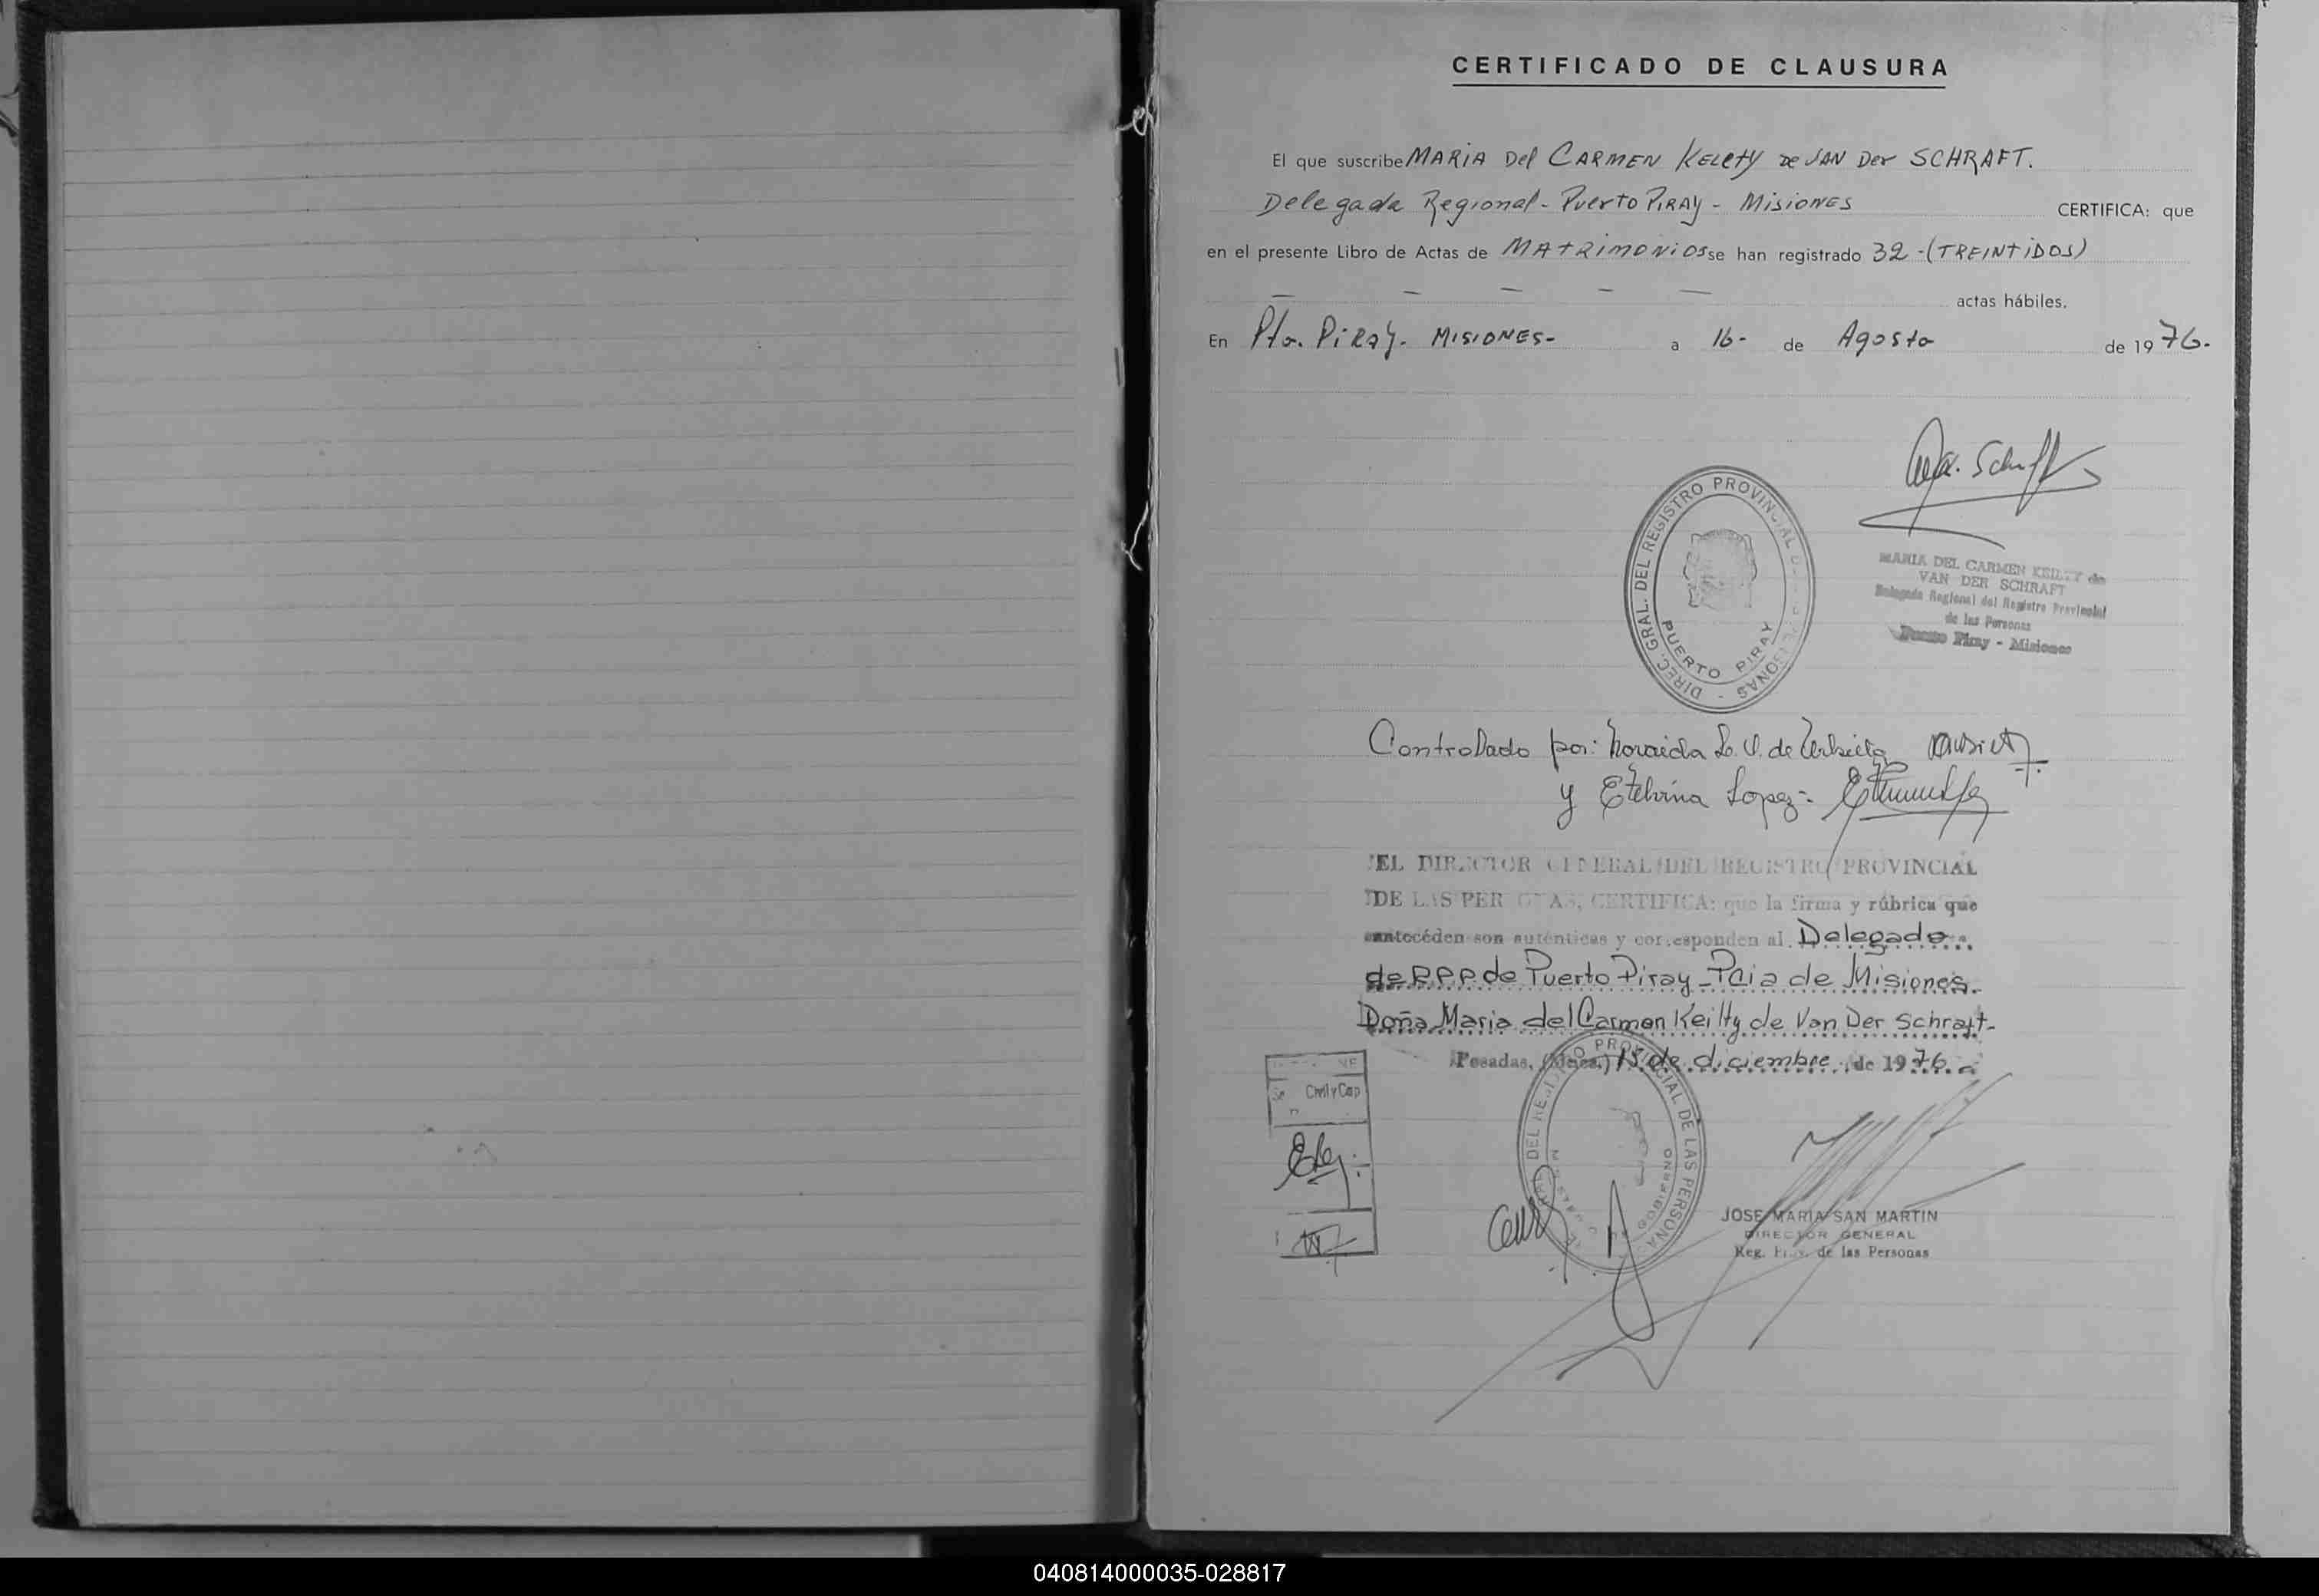 CERTIFICADO DE CLAUSURA
El que suscribe MARIA Del CARMEN KELETY DE VAN Der SCHRAFT.
Delegada Regional - Puerto PIRAY - MisioNES CERTIFICA: que
en el presente Libro de Actas de MATRIMONIOS se han registrado 32 - (TREINTIDOS)
actas hábiles.
En Pto. PiRay. MISIONES - a 16 - de Agosto de 1976.
DIREC. GRAL. DEL REGISTRO PROVINCIAL PERSONAS
PUERTO PIRAY
MARIA DEL CARMEN KEILTY de
VAN DER SCHRAFT
Delegada Regional del Registro Provincial
de las Personas
Puerto Piray - Misiones
Controlado por: de
y Etelvina Lopez -
EL DIRECTOR GENERAL DEL REGISTRO PROVINCIAL
DE LAS PERSONAS, CERTIFICA: que la firma y rúbrica que
anteceden son auténticas y corresponden al Delegado
de R.P.P. de Puerto Piray - Pcia de Misiones.
Doña Maria del Carmen Keilty de Van Der Schraft -
Posadas, (Mnes.) 15 de diciembre de 1976
DEL REGISTRO PROVINCIAL DE LAS PERSONAS
GOBIERNO
JOSE MARIA SAN MARTIN
DIRECTOR GENERAL
Reg. Prov. de las Personas
040814000035-028817